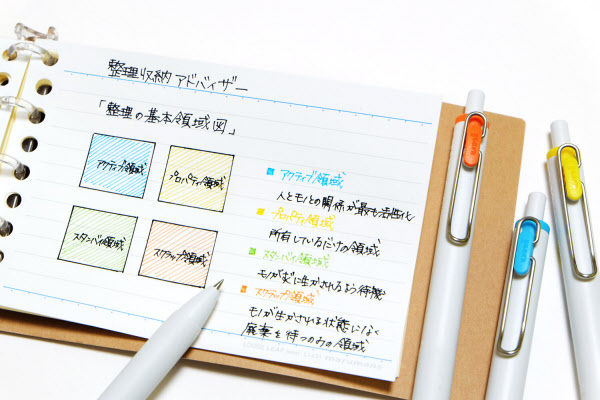 整理収納アドバイザー
「整理の基本領域図」
アクティブ領域
プロパティ領域
スタンバイ領域
スクラップ領域
アクティブ領域
人とモノとの関係が最も活性化
プロパティ領域
所有しているだけの領域
スタンバイ領域
モノが次に生かされるよう待機
スクラップ領域
モノが生かされる状態になく
廃棄を待つのみの領域
LOOSE LEAF
maruman